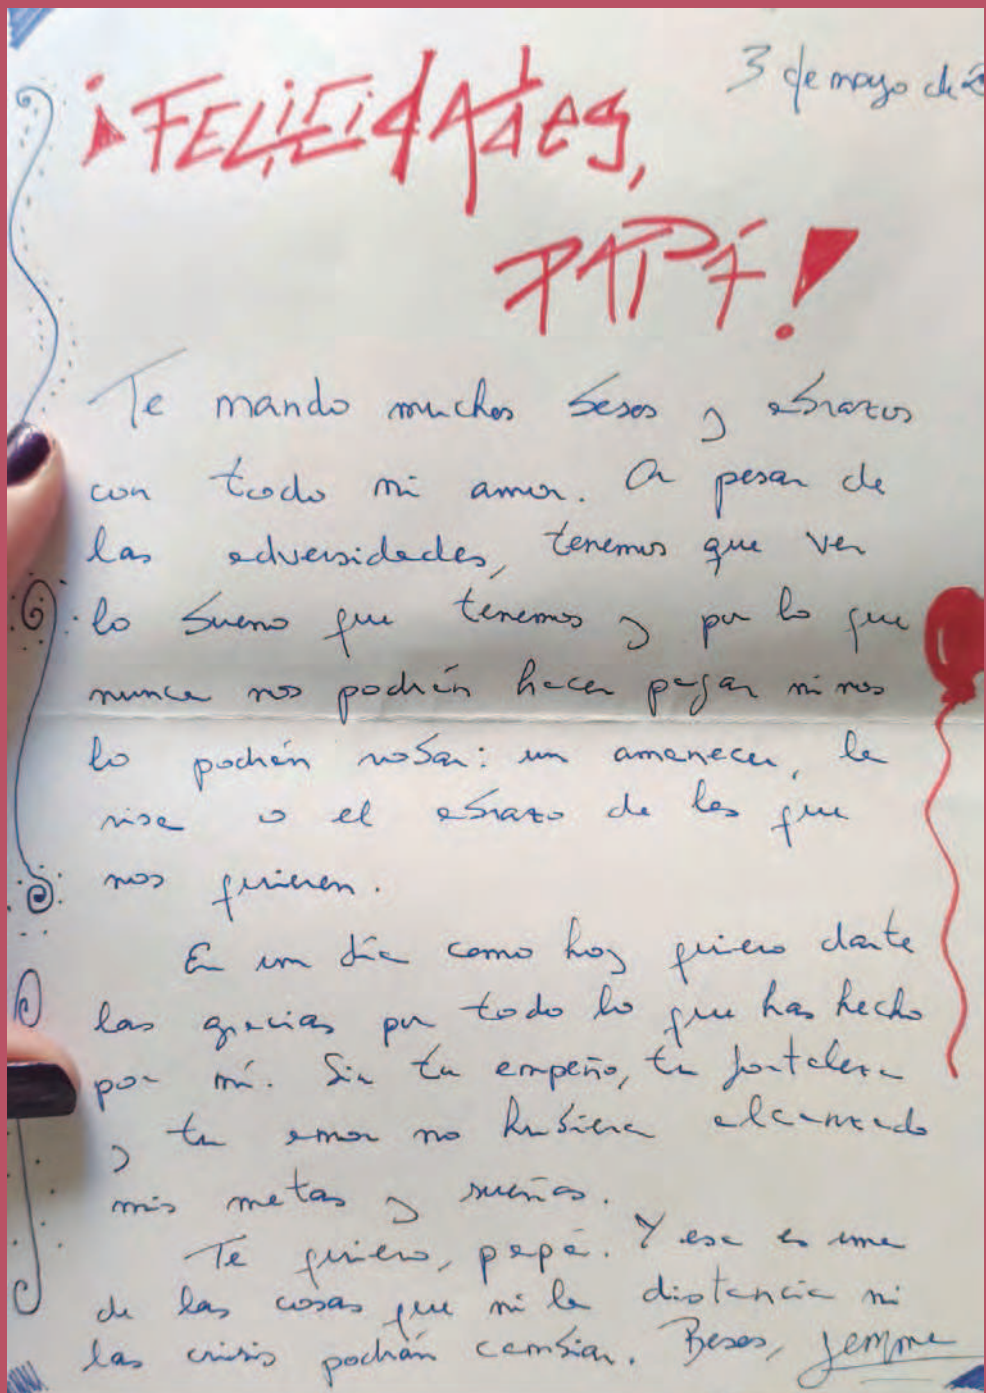 3 de mayo de 2
¡FELICIDADES,
PAPÁ!
Te mando muchos besos y abrazos
con todo mi amor. A pesar de
las adversidades, tenemos que ver
lo bueno que tenemos y por lo que
nunca nos podrán hacer pagar ni nos
lo podrán robar: un amanecer, la
risa o el abrazo de los que
nos quieren.
En un día como hoy quiero darte
las gracias por todo lo que has hecho
por mí. Sin tu empeño, tu fortaleza
y tu amor no hubiera alcanzado
mis metas y sueños.
Te quiero, papá. Y esa es una
de las cosas que ni la distancia ni
las crisis podrán cambiar. Besos,